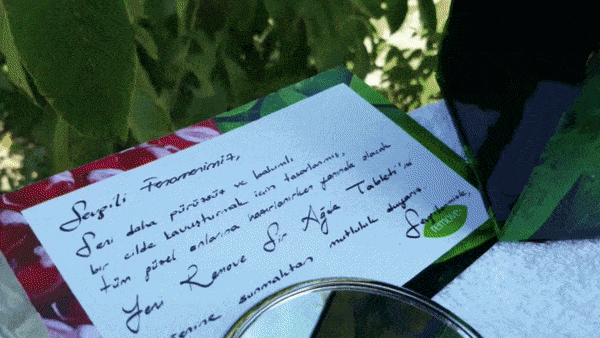 Sevgili Fenomenimiz,
Seni daha pürüzsüz ve bakımlı
bir cilde kavuşturmak için tasarlanmış,
tüm güzel anlarına hazırlanırken yanında olacak
Yeni Remove Sir Ağda Tableti'ni
sunmaktan mutluluk duyarız.
remove